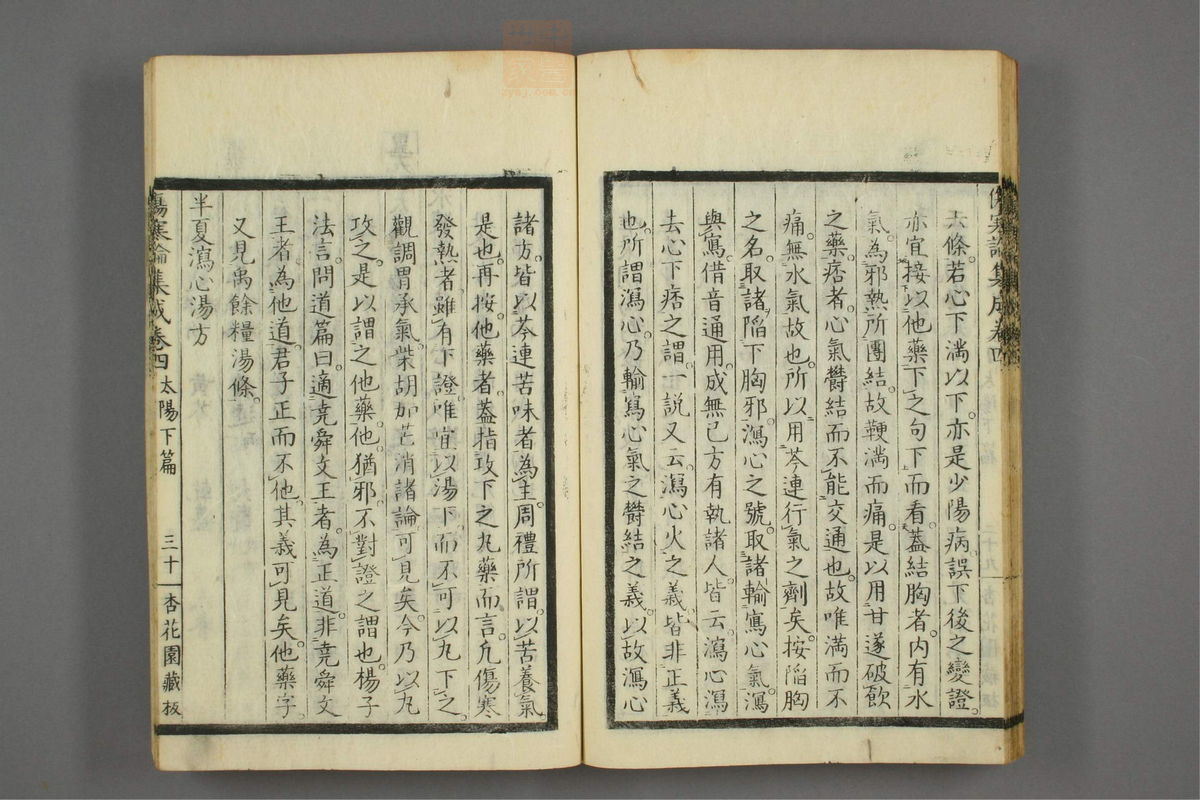 傷寒論集成卷四
六條若心下滿以下亦是少陽病誤下後之變證
亦宜接以他藥下之句下而看蓋結胸者内有水
氣為邪熱所團結故鞕滿而痛是以用甘遂破飲
之藥痞者心氣鬱結而不能交通也故唯滿而不
痛無水氣故也所以用芩連行氣之劑矣按陷胸
之名取諸陷下胸邪瀉心之號取諸輸寫心氣瀉
與寫借音通用成無己方有執諸人皆云瀉心瀉
去心下痞之謂一說又云瀉心火之義皆非正義
也所謂瀉心乃輸寫心氣之鬱結之義以故瀉心
諸方皆以芩連苦味者為主周禮所謂以苦養氣
是也再按他藥者蓋指攻下之丸藥而言凡傷寒
發熱者雖有下證唯宜以湯下而不可以丸下之
觀調胃承氣柴胡加芒消諸論可見矣今乃以丸
攻之是以謂之他藥他猶邪不對證之謂也楊子
法言問道篇曰適堯舜文王者為正道非堯舜文
王者為他道君子正而不他其義可見矣他藥字
又見禹餘糧湯條
半夏瀉心湯方
傷寒論集成卷四 太陽下篇 三十 杏花園藏板